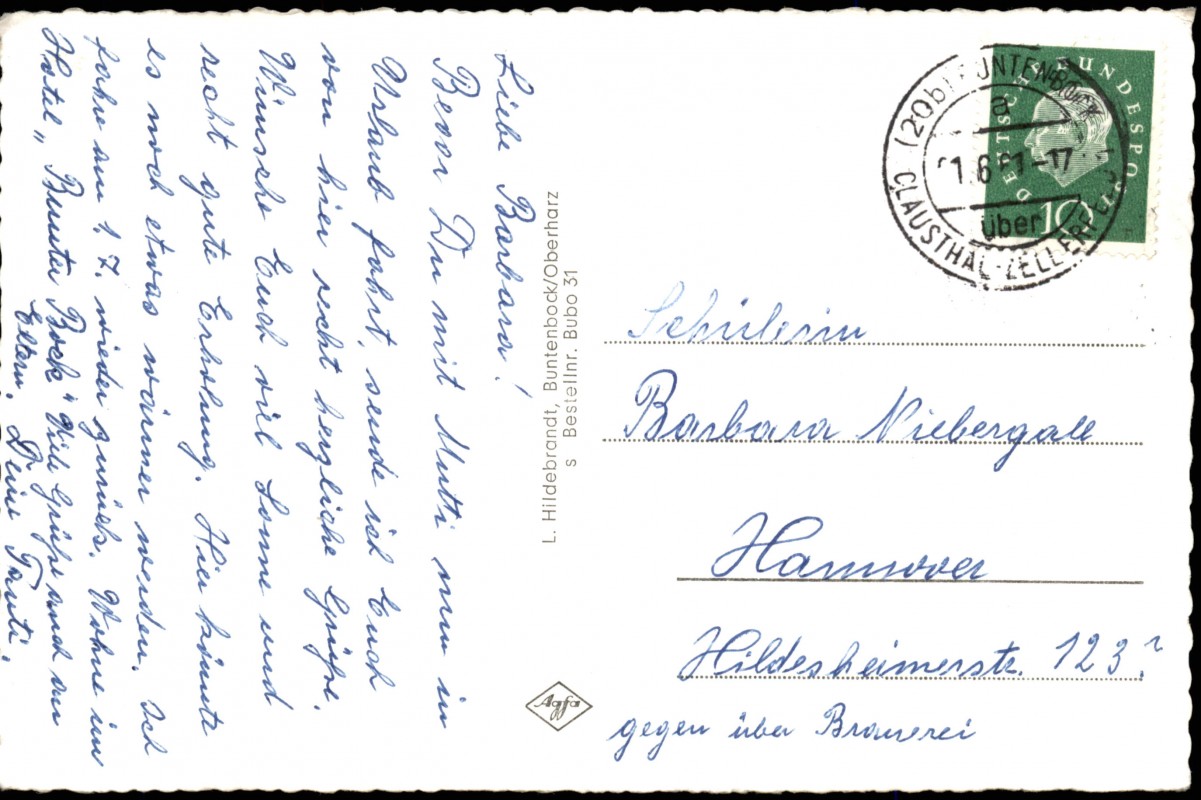 Liebe Barbara!
Bevor Du mit Mutti nun in
Urlaub fährt, sende ich Euch
von hier recht herzliche Grüße.
Wünsche Euch viel Sonne und
recht gute Erholung. Hier könnte
es noch etwas wärmer werden. Ich
fahre am 1.7. wieder zurück. Wohne im
Hotel „Bunter Bock" Viele Grüße auch an
Eltern. Deine Tanti.
L. Hildebrandt, Buntenbock/Oberharz
s Bestellnr. Bubo 31
Agfa
(20b) BUNTENBOCK
a
1.6.61-17
über
CLAUSTHAL-ZELLERFELD 1
DEUTSCHE BUNDESPOST
10
Schülerin
Barbara Niebergall
Hannover
Hildesheimerstr. 123?
gegen über Brauerei